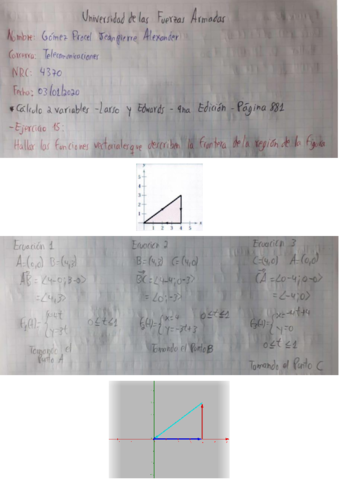 Universidad de las Fuerzas Armadas
Nombre: Gómez Alexander
Carrera: Telecomunicaciones
NRC: 4320
Fecha: 03/01/2020
• Cálculo 2 variables - Larso y Edwards - 9na Edición - Página 881
- Ejercicio 15:
Hallar las funciones vectoriales que describan la Frontera de la región de la figura
y
5
4
3
2
1
1 2 3 4 5 x
Ecuación 1
A=(0,0) B=(4,3)
AB = <4-0; 3-0>
= <4,3>
0≤t≤1
Tomando el
Punto A
Ecuación 2
B=(4,3) C=(4,0)
BC = <4-4; 0-3>
= <0;-3>
0≤t≤1
y=-3t+3
Tomando el Punto B
Ecuación 3
C=(4,0) A=(0,0)
CA = <0-4; 0-0>
= <-4;0>
x=-4t+4
y=0
0≤t≤1
Tomando el Punto C